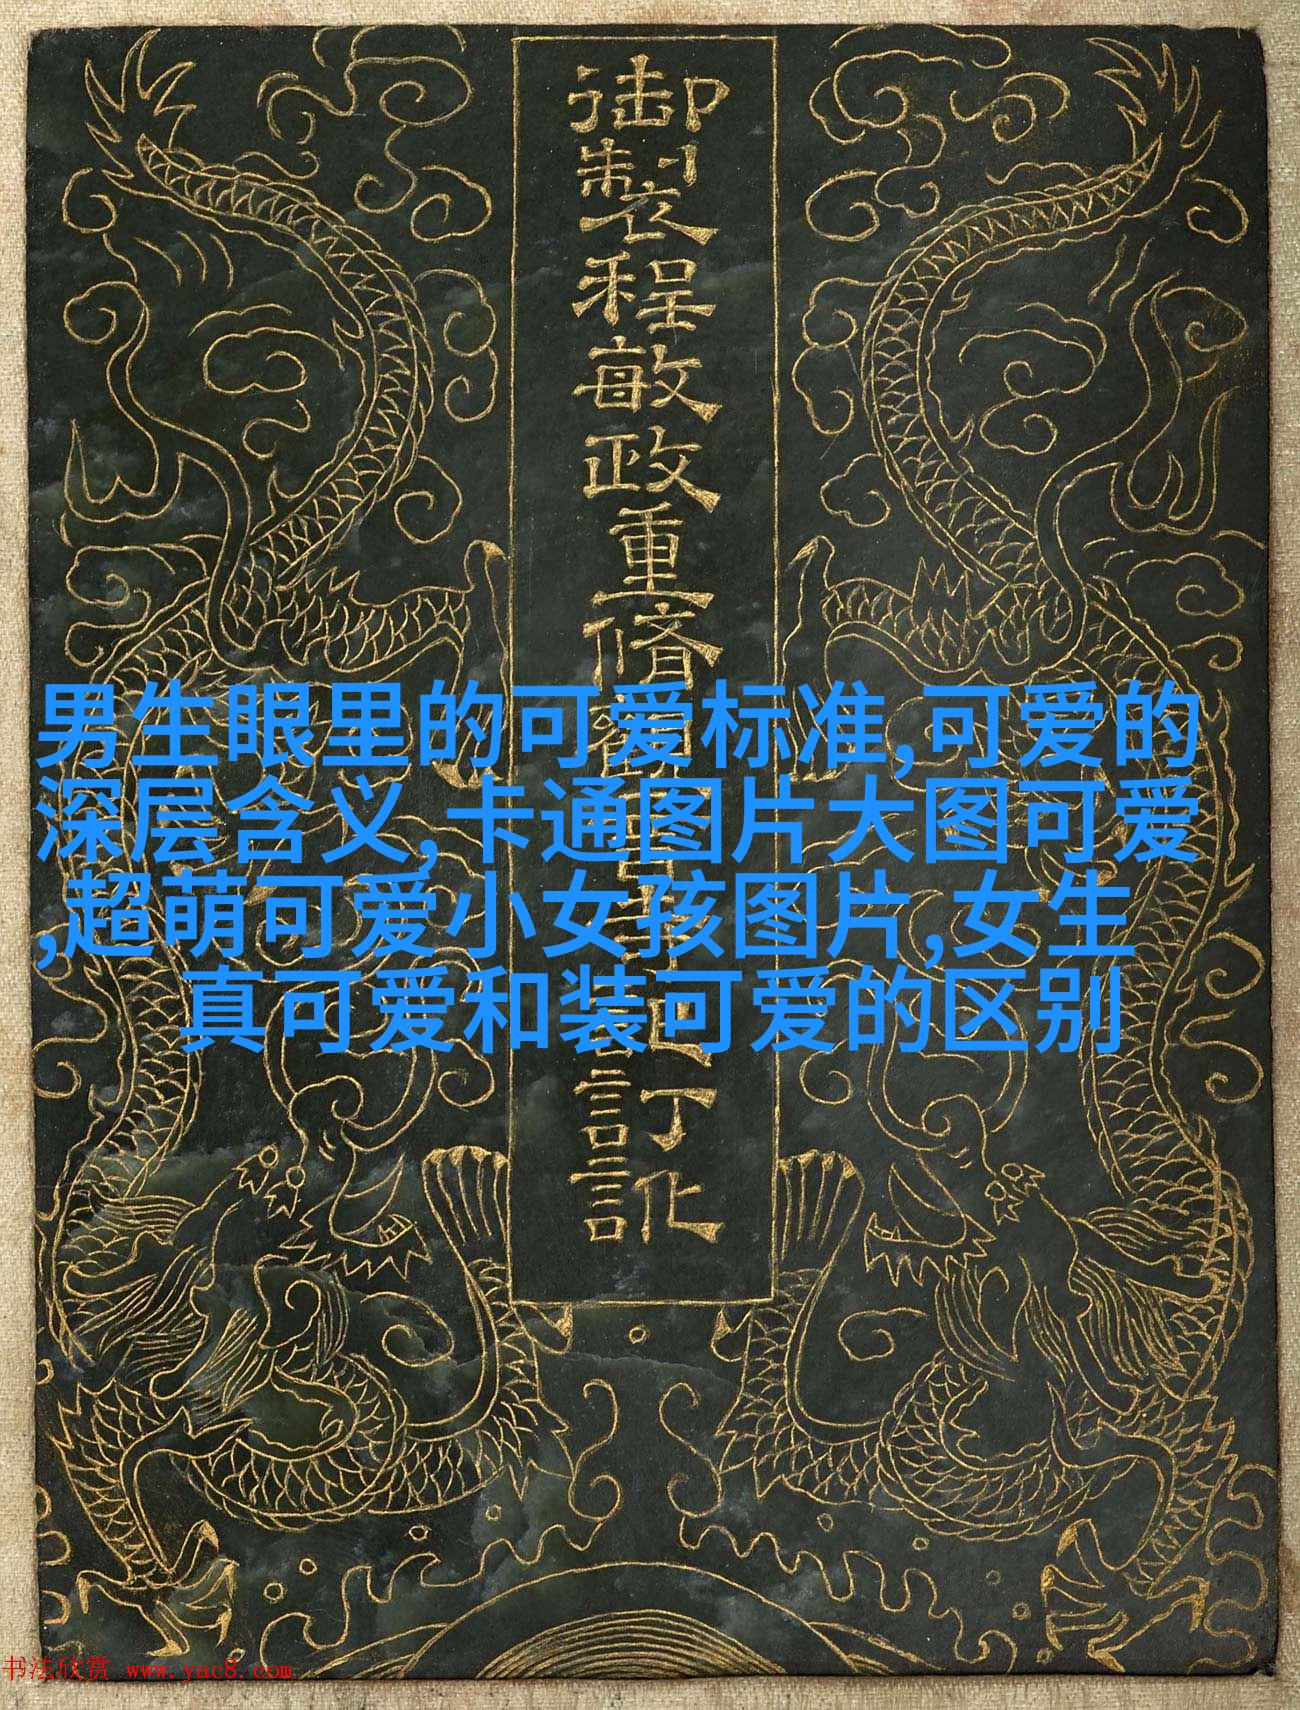 御製程敏政重脩訂訛
男生眼里的可爱标准,可爱的
深层含义,卡通图片大图可爱
,超萌可爱小女孩图片,女生
真可爱和装可爱的区别
书法欣赏 www.yac8.com